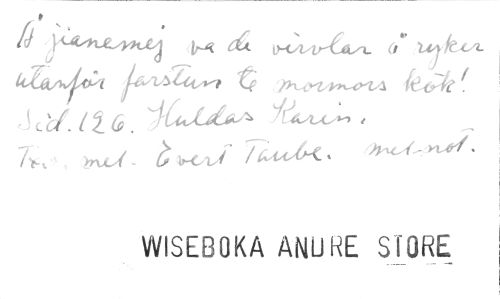 Å jianemej va de virvlar å ryker
utanför farstun te mormors kök!
Sid. 126. Huldas Karin.
Tex. mel. Evert Taube. mel-not.
WISEBOKA ANDRE STORE